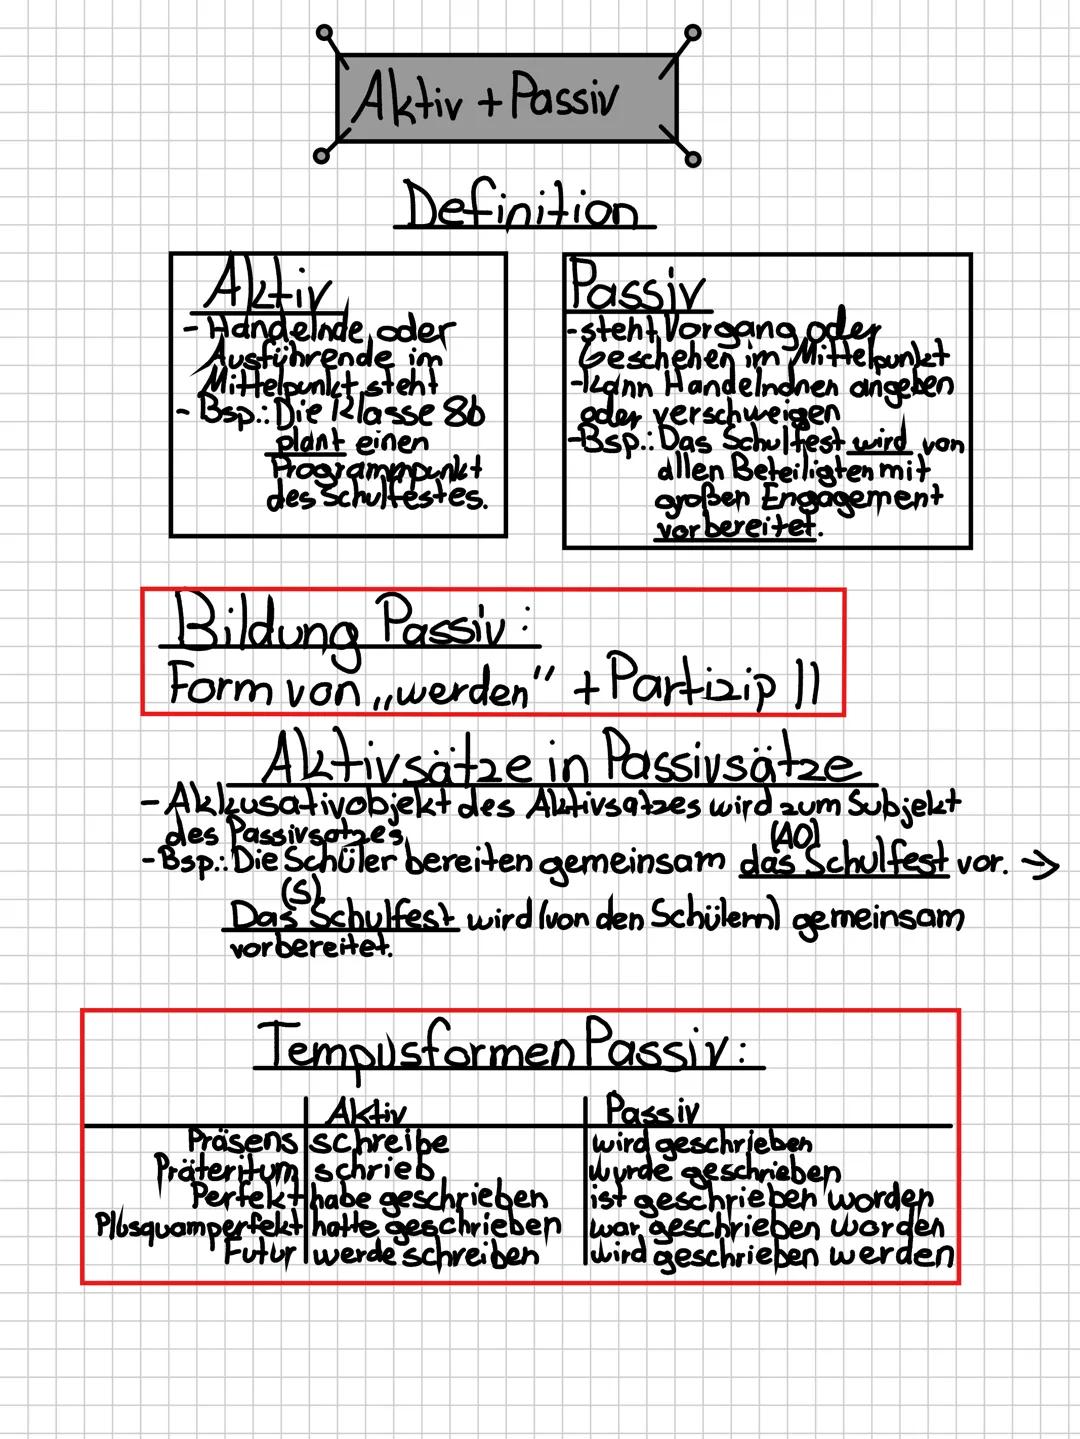 Aktiv + Passiv
Definition
Aktiv
- Handelnde oder
Ausführende im
Mittelpunkt steht
- Bsp.: Die Klasse 8b
plant einen
Programmpunkt
des Schulfestes.
Passiv
- steht Vorgang oder
Geschehen im Mittelpunkt
- kann Handelndnen angeben
oder verschweigen
- Bsp.: Das Schulfest wird von
allen Beteiligten mit
großen Engagement
vorbereitet.
Bildung Passiv:
Form von „werden" + Partizip II
Aktivsätze in Passivsätze
- Akkusativobjekt des Aktivsatzes wird zum Subjekt
des Passivsatzes
(AO)
- Bsp.: Die Schüler bereiten gemeinsam das Schulfest vor. →
(S)
Das Schulfest wird (von den Schülern) gemeinsam
vorbereitet.
Tempusformen Passiv:
Aktiv Passiv
Präsens schreibe wird geschrieben
Präteritum schrieb wurde geschrieben
Perfekt habe geschrieben ist geschrieben worden
Plusquamperfekt hatte geschrieben war geschrieben worden
Futur werde schreiben wird geschrieben werden